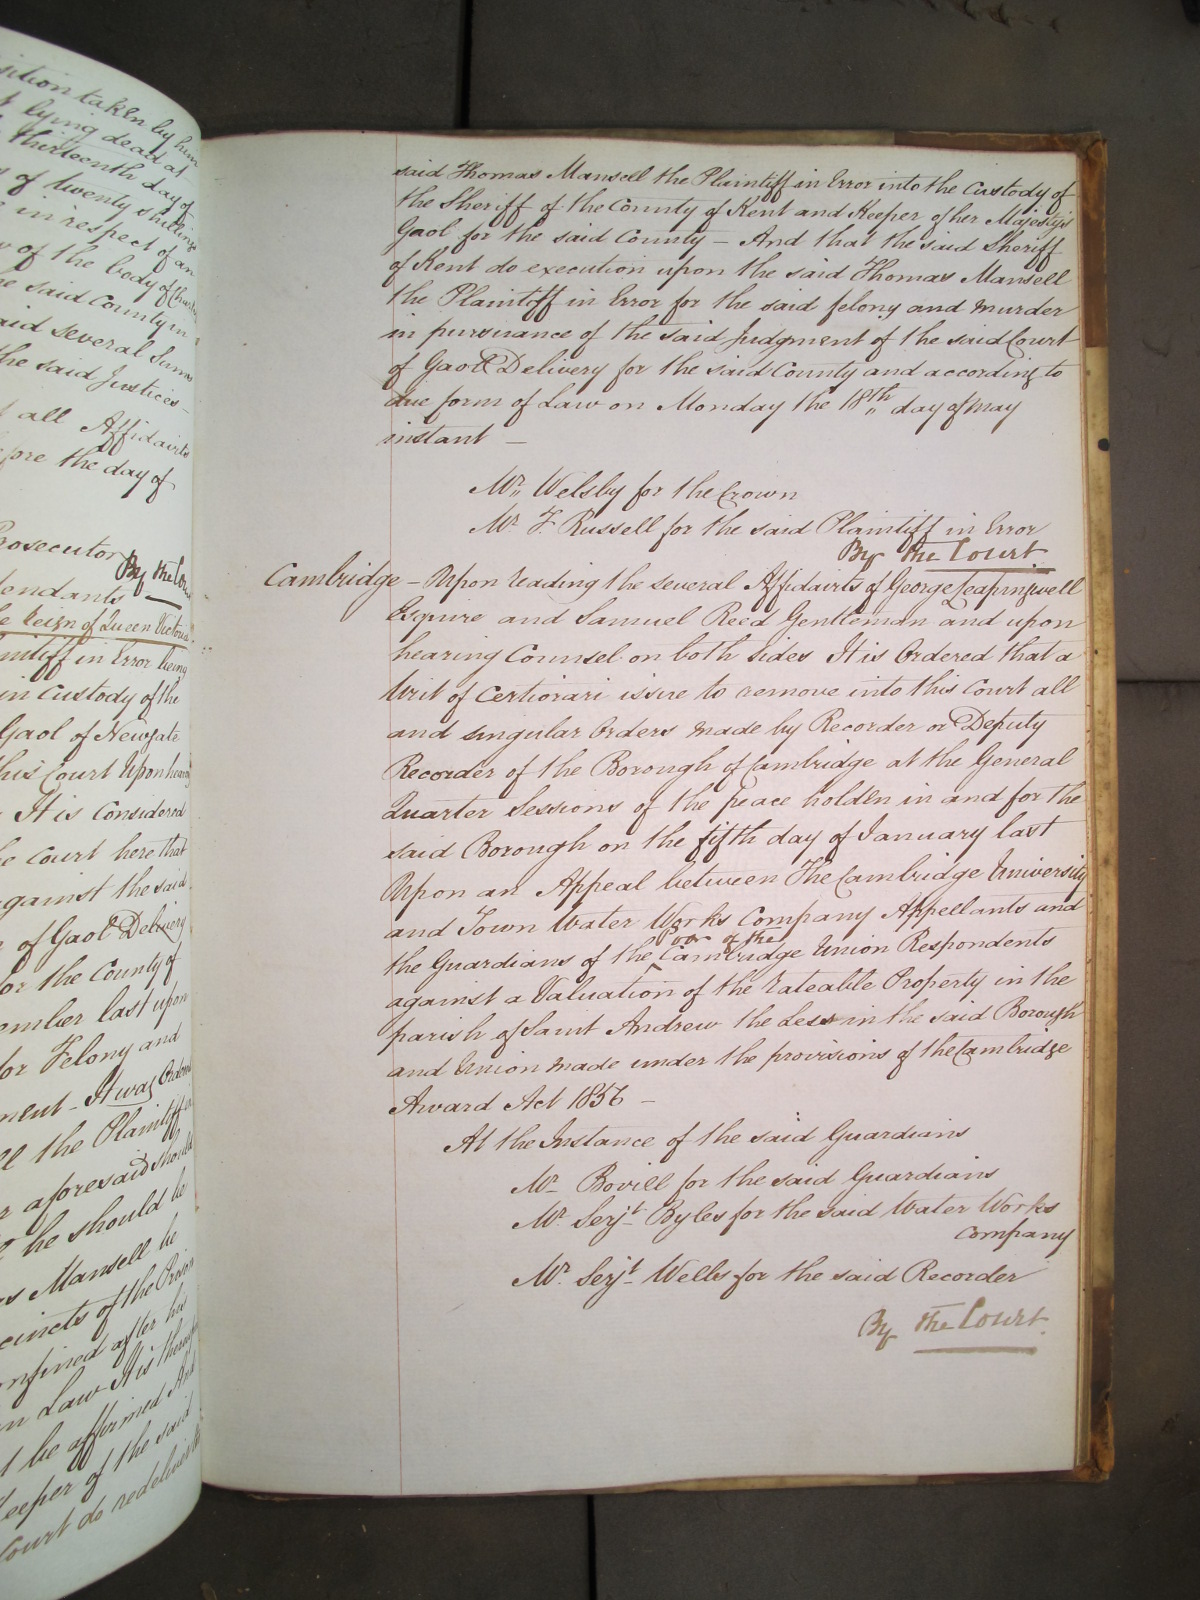 sition taken by him
t lying dead at
thirteenth day of
s of twenty shillings
e in respect of an
w of the body of
he said County in
aid several Sums
the said Justices -
f all Affidavits
fore the day of
Prosecutor
By the Cou
fendants
e Reign of Queen Victoria
intiff in Error being
in Custody of the
Gaol of Newgate
this Court Upon hearing
It is Considered
he Court here that
against the said
e of Gaol Delivery
or the County of
ember last upon
for Felony and
ment - It was Ordered
ll the Plaintiff
r aforesaid should
l he should be
s Mansell be
cincts of the Prison
onfined after his
in Law It is therefore
t be affirmed And
Keeper of the said
Court do redeliver the
said Thomas Mansell the Plaintiff in Error into the Custody of
the Sheriff of the County of Kent and Keeper of her Majestys
Gaol for the said County – And that the said Sheriff
of Kent do execution upon the said Thomas Mansell
the Plaintiff in Error for the said felony and murder
in pursuance of the said Judgment of the said Court
of Gaol Delivery for the said County and according to
due form of Law on Monday the 18th day of May
instant –
Mr. Welsby for the Crown
Mr. F. Russell for the said Plaintiff in Error
By the Court.
Cambridge – Upon reading the several Affidavits of George Leapingwell
Esquire and Samuel Reed Gentleman and upon
hearing Counsel on both sides It is Ordered that a
Writ of Certiorari issue to remove into this Court all
and singular Orders made by Recorder or Deputy
Recorder of the Borough of Cambridge at the General
Quarter Sessions of the peace holden in and for the
said Borough on the fifth day of January last
Upon an Appeal between The Cambridge University
and Town Water Works Company Appellants and
the Guardians of the Poor of the Cambridge Union Respondents
against a Valuation of the rateable Property in the
parish of Saint Andrew the Less in the said Borough
and Union made under the provisions of the Cambridge
Award Act 1856 –
At the Instance of the said Guardians
Mr. Bovill for the said Guardians
Mr. Serjt. Byles for the said Water Works
Company
Mr. Serjt. Wells for the said Recorder
By the Court.